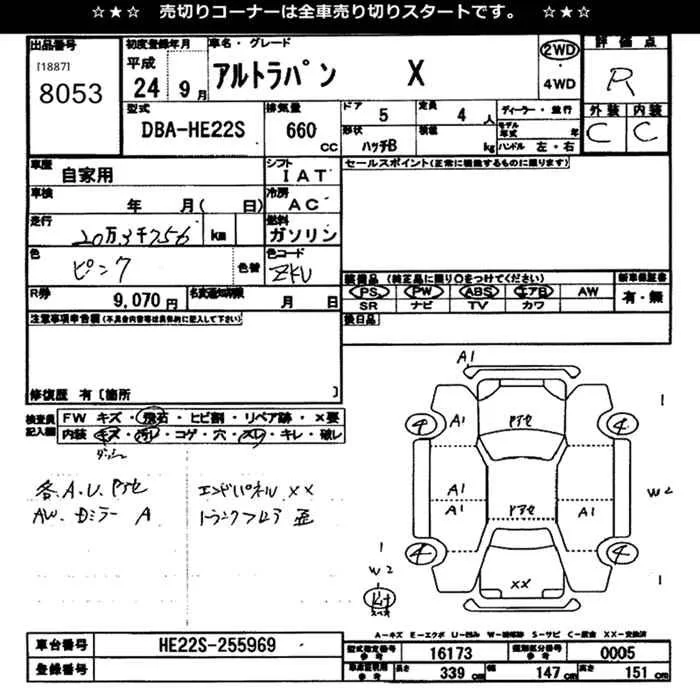 ☆★☆ 売切りコーナーは全車売り切りスタートです。 ☆★☆
出品番号 初度登録年月 車名・グレード 2WD 評価点
[1887] 平成 アルトラパン X R
8053 24 9月 4WD
型式 排気量 ドア 定員 ディーラー・並行 外装 内装
DBA-HE22S 660 cc 5 4人 モデル年式 年 C C
形状 ハッチB 積載 kg ハンドル 左・右
車歴 シフト セールスポイント(正常に機能するものに限ります)
自家用 IAT
車検 年 月( 日) 冷房 AC
走行 20万3千756 km 燃料 ガソリン
色 ピンク 色替 色コード ZKU
装備品 (純正品に限り〇をつけてください) 新車保証書
R券 9,070円 名変通知期限 月 日
PS PW ABS エアB AW 有・無
SR ナビ TV カワ
注意事項申告欄(不具合内容等は具体的に記入して下さい) 後日品
修復歴 有〔箇所 〕
検査員記入欄 FW キズ・飛石・ヒビ割・リペア跡・×要
内装 キズ・汚レ・コゲ・穴・スレ・キレ・破レ
ダッシュ
各A.U.P アセ エンドパネル XX
AW.Dミラー A トランクフロア 歪
A1
A1 4 Pアセ 4 1
A1 A1 Pアセ A1 W2
1 4 XX 4 1
W2
A-キズ E-エクボ U-凹み W-補修跡 S-サビ C-腐食 XX-交換済
車台番号 HE22S-255969 型式指定番号 参考 16173 類別区分番号 参考 0005
登録番号 長さ 339cm 幅 147cm 高さ 151cm